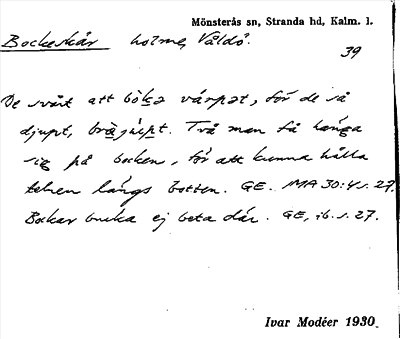 Mönsterås sn, Stranda hd, Kalm. l.
Bockeskär holme, Våldö.
39
De svårt att böka várpet, för de så
djupt, bråjúpt. Två man få hänga
sig på bocken, för att kunna hålla
telnen längs botten. GE. MA 30:4 s. 27.
Bockar bruka ej beta där. GE, ib. s. 27.
Ivar Modéer 1930.